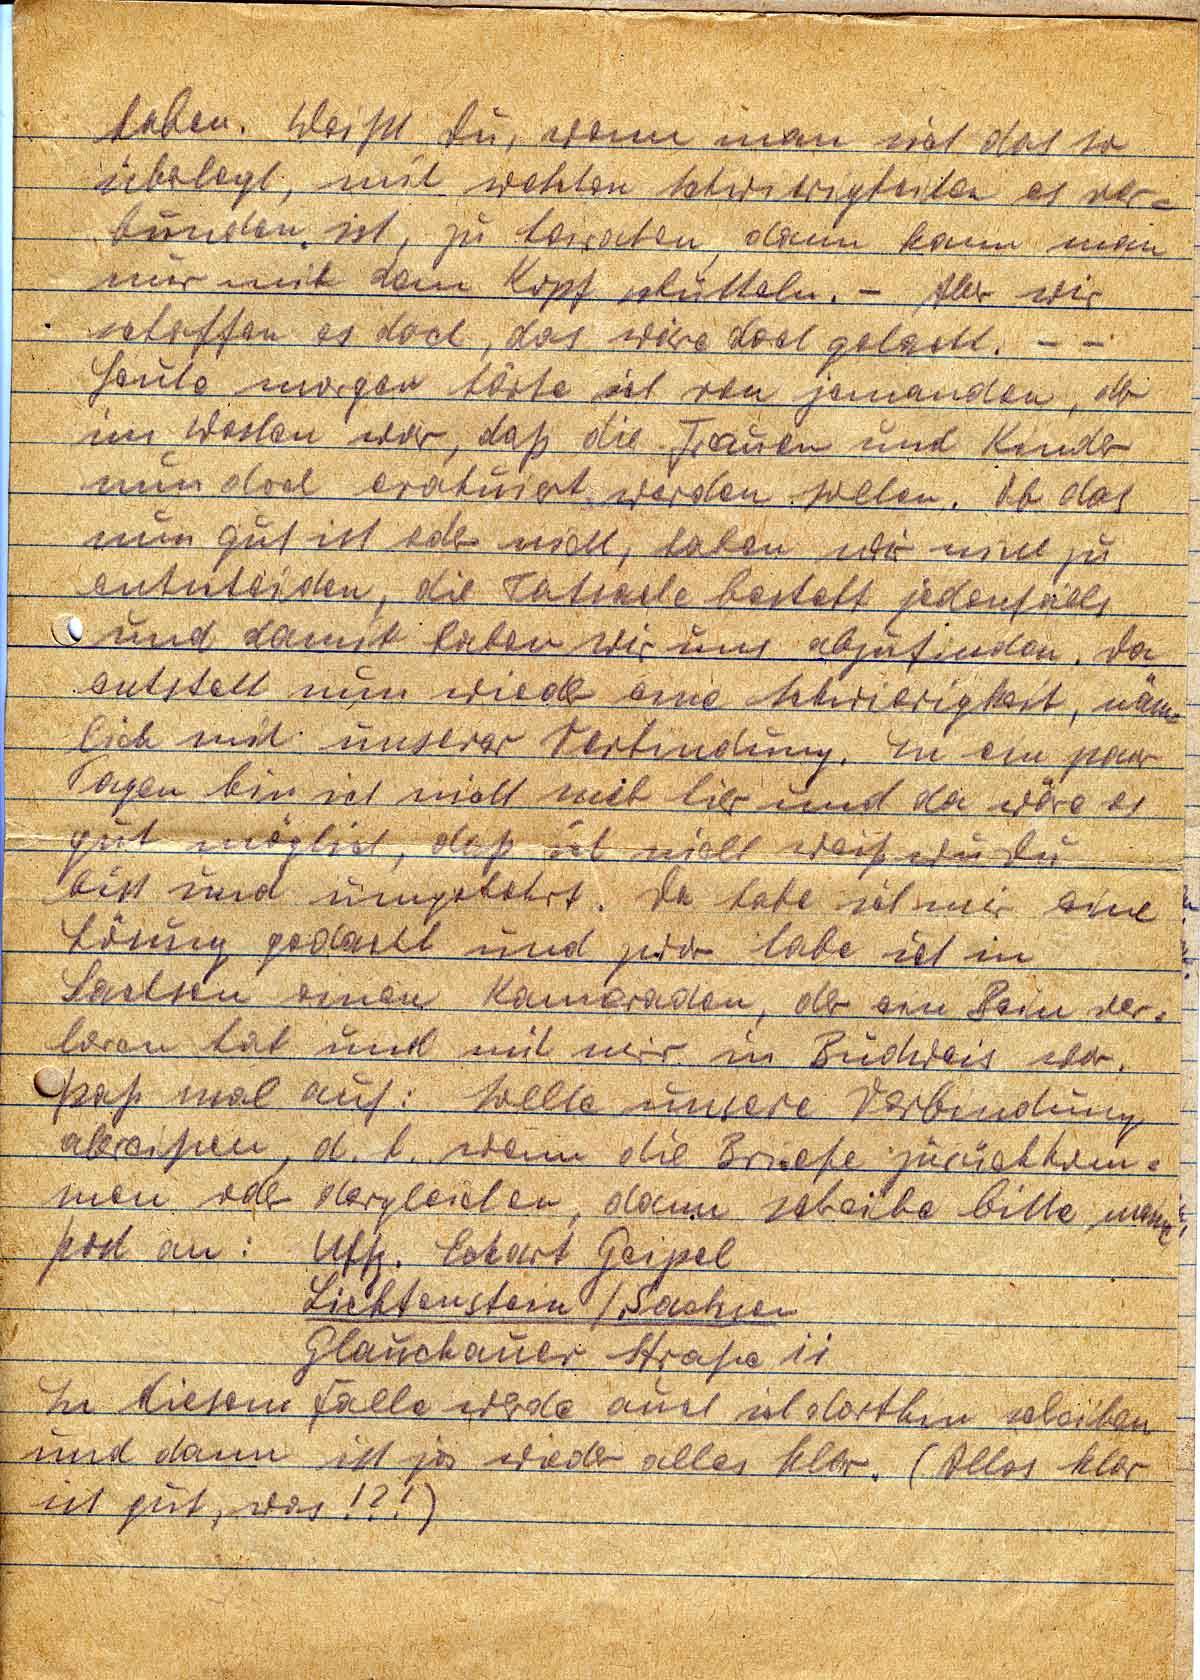 haben. Weißt Du, wenn man sich das so
überlegt, mit welchen Schwierigkeiten es ver-
bunden ist, zu heiraten, dann kann man
nur mit dem Kopf schütteln. – Aber wir
schaffen es doch, das wäre doch gelacht. – –
Heute morgen hörte ich von jemanden, der
im Westen war, daß die Frauen und Kinder
nun doch evakuiert werden sollen. Ob das
nun gut ist oder nicht, haben wir nicht zu
entscheiden, die Tatsache besteht jedenfalls
und damit haben wir uns abzufinden. Da
entsteht nun wieder eine Schwierigkeit, näm-
lich mit unserer Verbindung. In ein paar
Tagen bin ich nicht mehr hier und da wäre es
gut möglich, daß ich nicht weiß wo Du
bist und umgekehrt. Da habe ich mir eine
Lösung gedacht und zwar habe ich in
Sachsen einen Kameraden, der ein Bein ver-
loren hat und mit mir in Budweis war.
Paß mal auf: Sollte unsere Verbindung
abreißen, d. h. wenn die Briefe zurückkom-
men oder dergleichen, dann schreibe bitte
an: Uffz. Eckart Geipel
Lichtenstein / Sachsen
Glauchauer Straße 11
In diesem Falle werde auch ich dorthin schreiben
und dann ist ja wieder alles klar. (Alles klar
ist gut, was!?!)